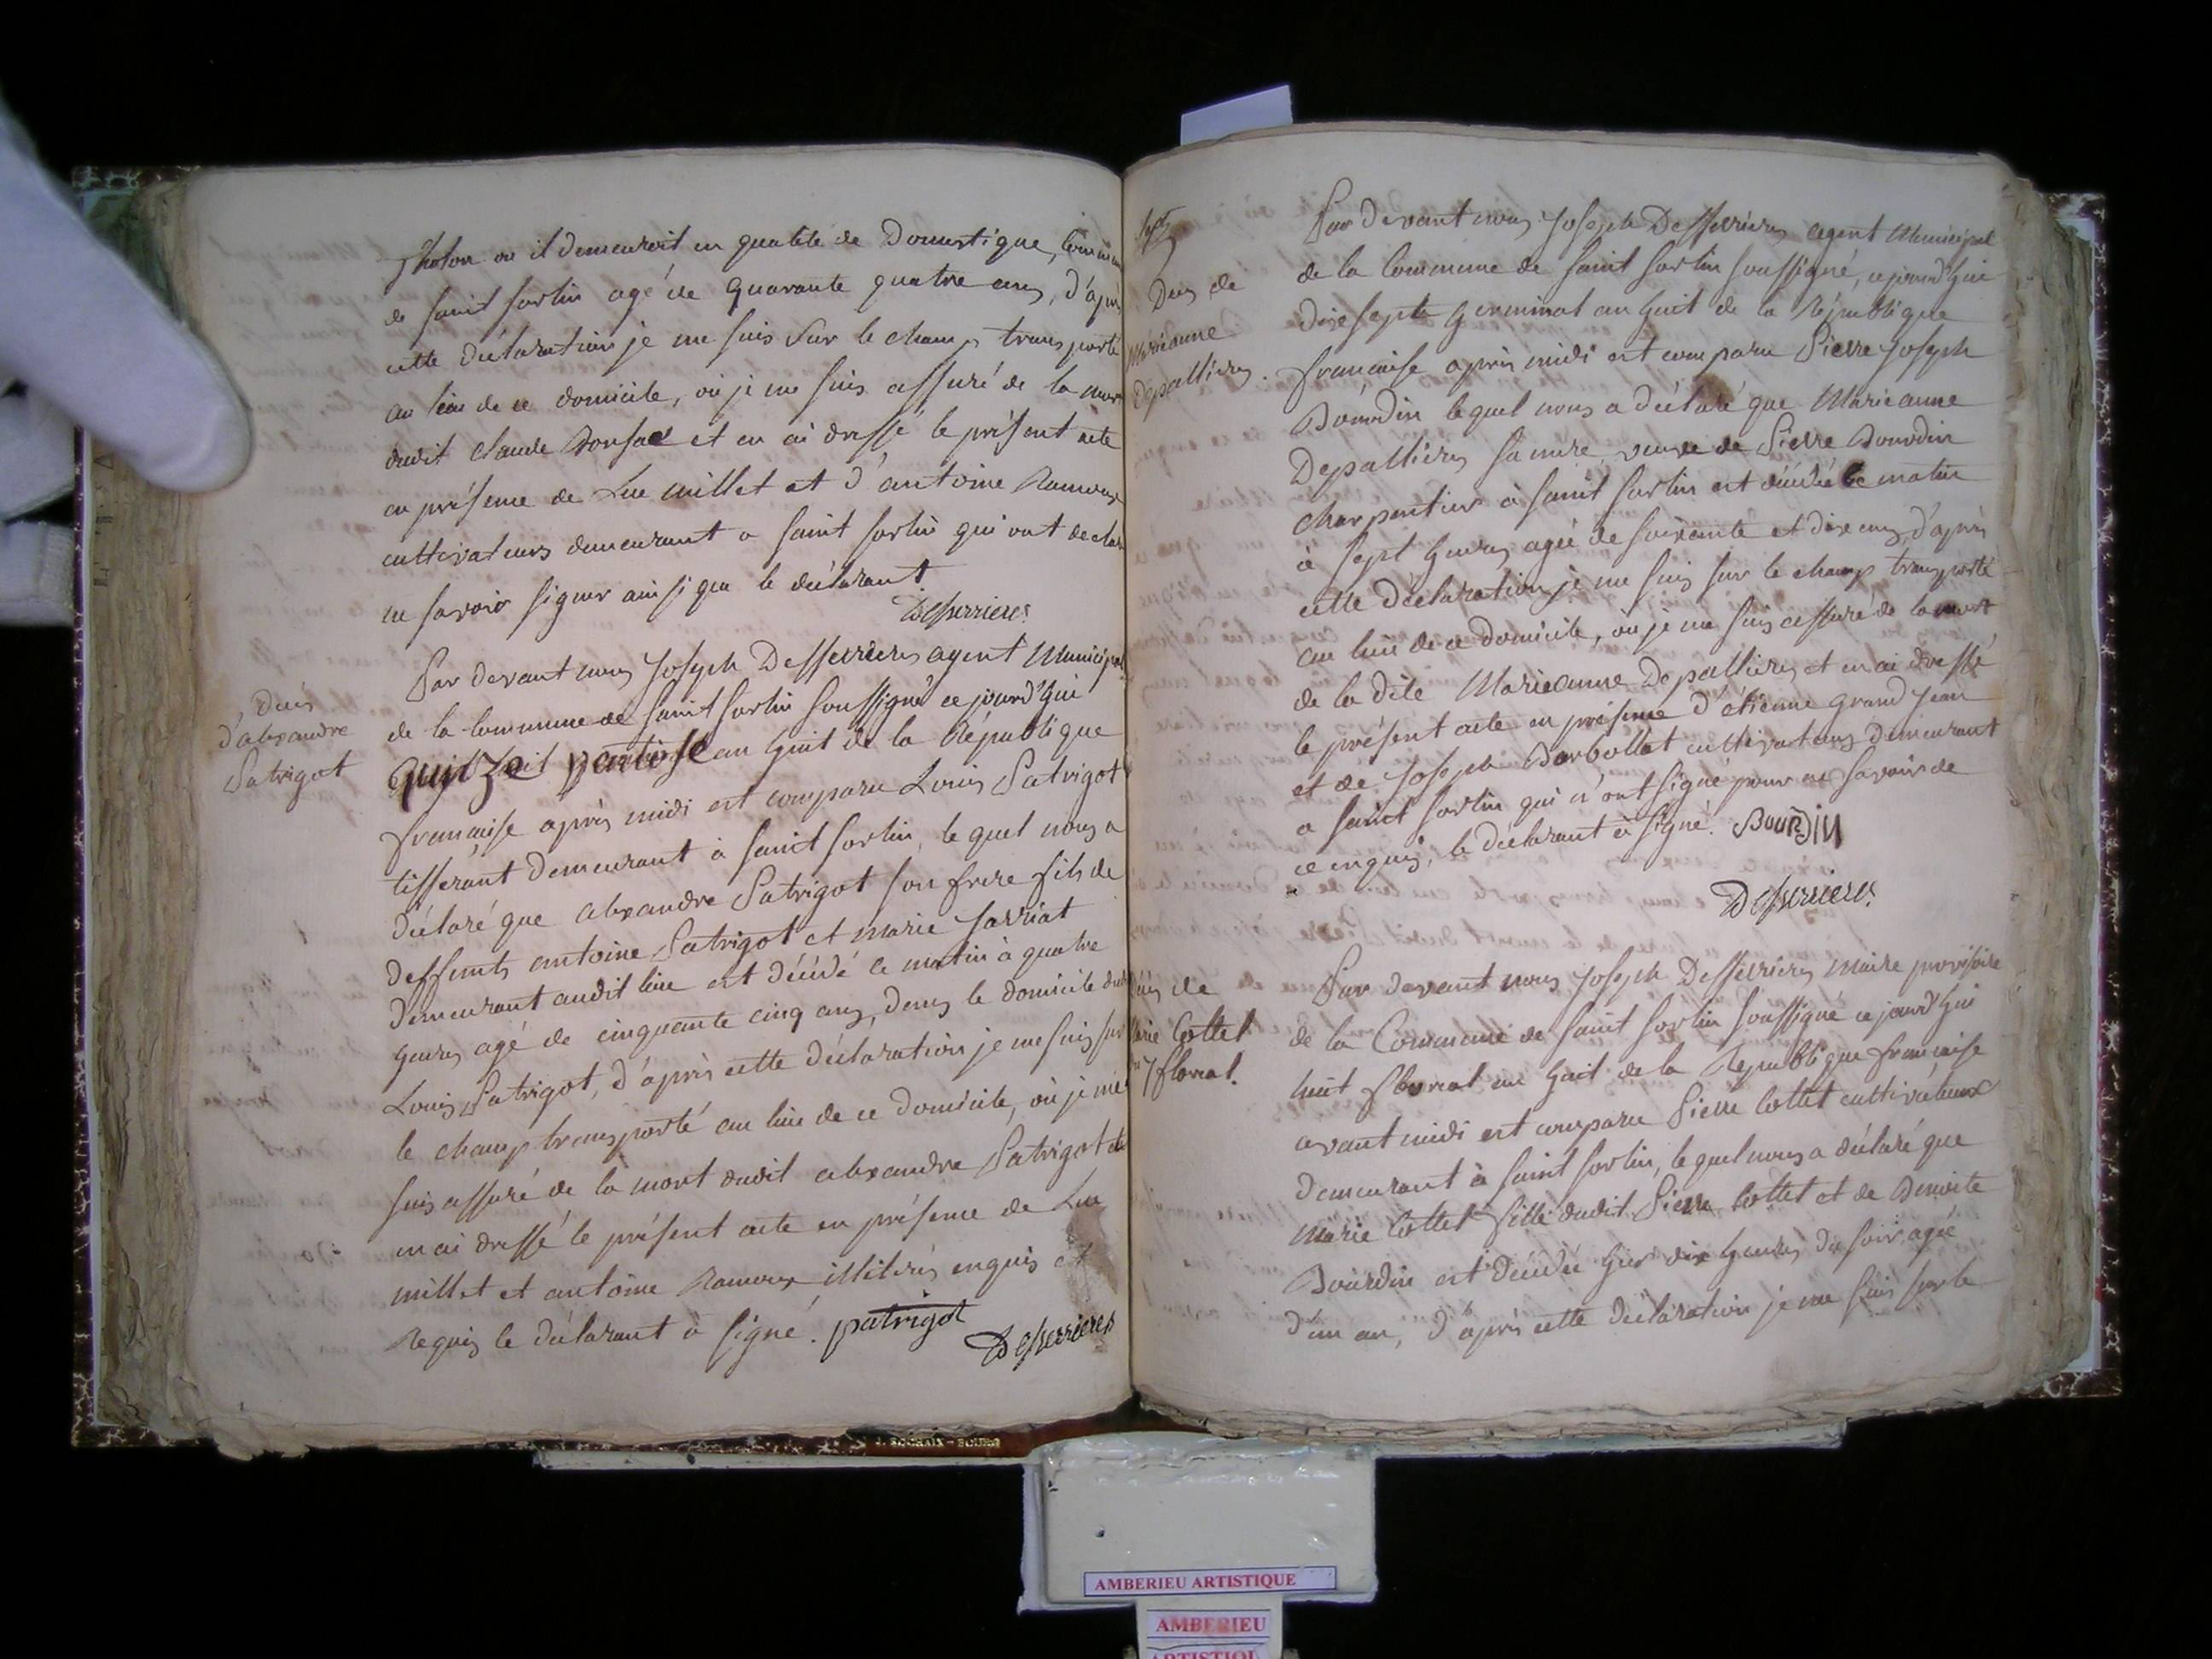 où il demeuroit en qualité de Domestique, commune
de Saint Sorlin agé de quarante quatre ans, d'après
cette déclaration je me suis sur le champ transporté
au lieu de ce domicile, où je me suis assuré de la mort
dudit Claude et en ai dressé le présent acte
en présence de Luc millet et d'antoine Ramoux
cultivateurs demeurant a saint sorlin qui ont declaré
ne savoir signer ainsi que le déclarant
Desferrieres
Décès
d'alexandre
Patrigot
Par devant nous Joseph Desferrieres agent Municipal
de la Commune de saint sorlin soussigné ce jourd'hui
quinze ventose an huit de la République
française après midi est comparu Louis Patrigot
tisserant demeurant à saint sorlin, lequel nous a
déclaré que alexandre Patrigot son frere fils de
deffunts antoine Patrigot et marie Sarriat
demeurant audit lieu est décédé ce matin à quatre
heures agé de cinquante cinq ans, dans le domicile dudit
Louis Patrigot, d'après cette déclaration je me suis sur
le champ transporté au lieu de ce domicile, où je me
suis assuré de la mort dudit alexandre Patrigot et
en ai dressé le présent acte en présence de Luc
millet et antoine Ramoux illiterés enquis et
Requis le déclarant à signé. patrigot
Desferrieres
Déces de
Marieanne
Depallieres.
Par devant nous Joseph Desferrieres agent Municipal
de la Commune de saint sorlin soussigné, ce jourd'hui
dixsepte germinal an huit de la République
française après midi est comparu Pierre Joseph
Bourdin lequel nous a déclaré que Marieanne
Depallieres sa mere, veuve de Pierre Bourdin
charpentier à saint sorlin est décédé ce matin
à sept heures agée de soixante et dix ans, d'après
cette déclaration je me suis sur le champ transporté
au lieu de ce domicile, où je me suis assuré de la mort
de la dite Marieanne Depallieres et en ai dressé
le présent acte en présence d'étienne grand Jean
et de Joseph Barbollat cultivateurs demeurant
a saint sorlin qui n'ont signé pour ne savoir de
ce enquis, le déclarant à signé. Bourdin
Desferrieres
Déces de
Marie Cottet
7 floreal.
Par devant nous Joseph Desferrieres maire provisoire
de la Commune de saint sorlin soussigné ce jourd'hui
huit floreal an huit de la République française
avant midi est comparu Pierre Cottet cultivateur
demeurant à saint sorlin, lequel nous a déclaré que
Marie Cottet fille dudit Pierre Cottet et de Benoite
Bourdin est décédée hier dix heures du soir agée
d'un an, d'après cette déclaration je me suis sur le
J. ROCHAIX - BOURG
AMBERIEU ARTISTIQUE
AMBERIEU
ARTISTIQUE